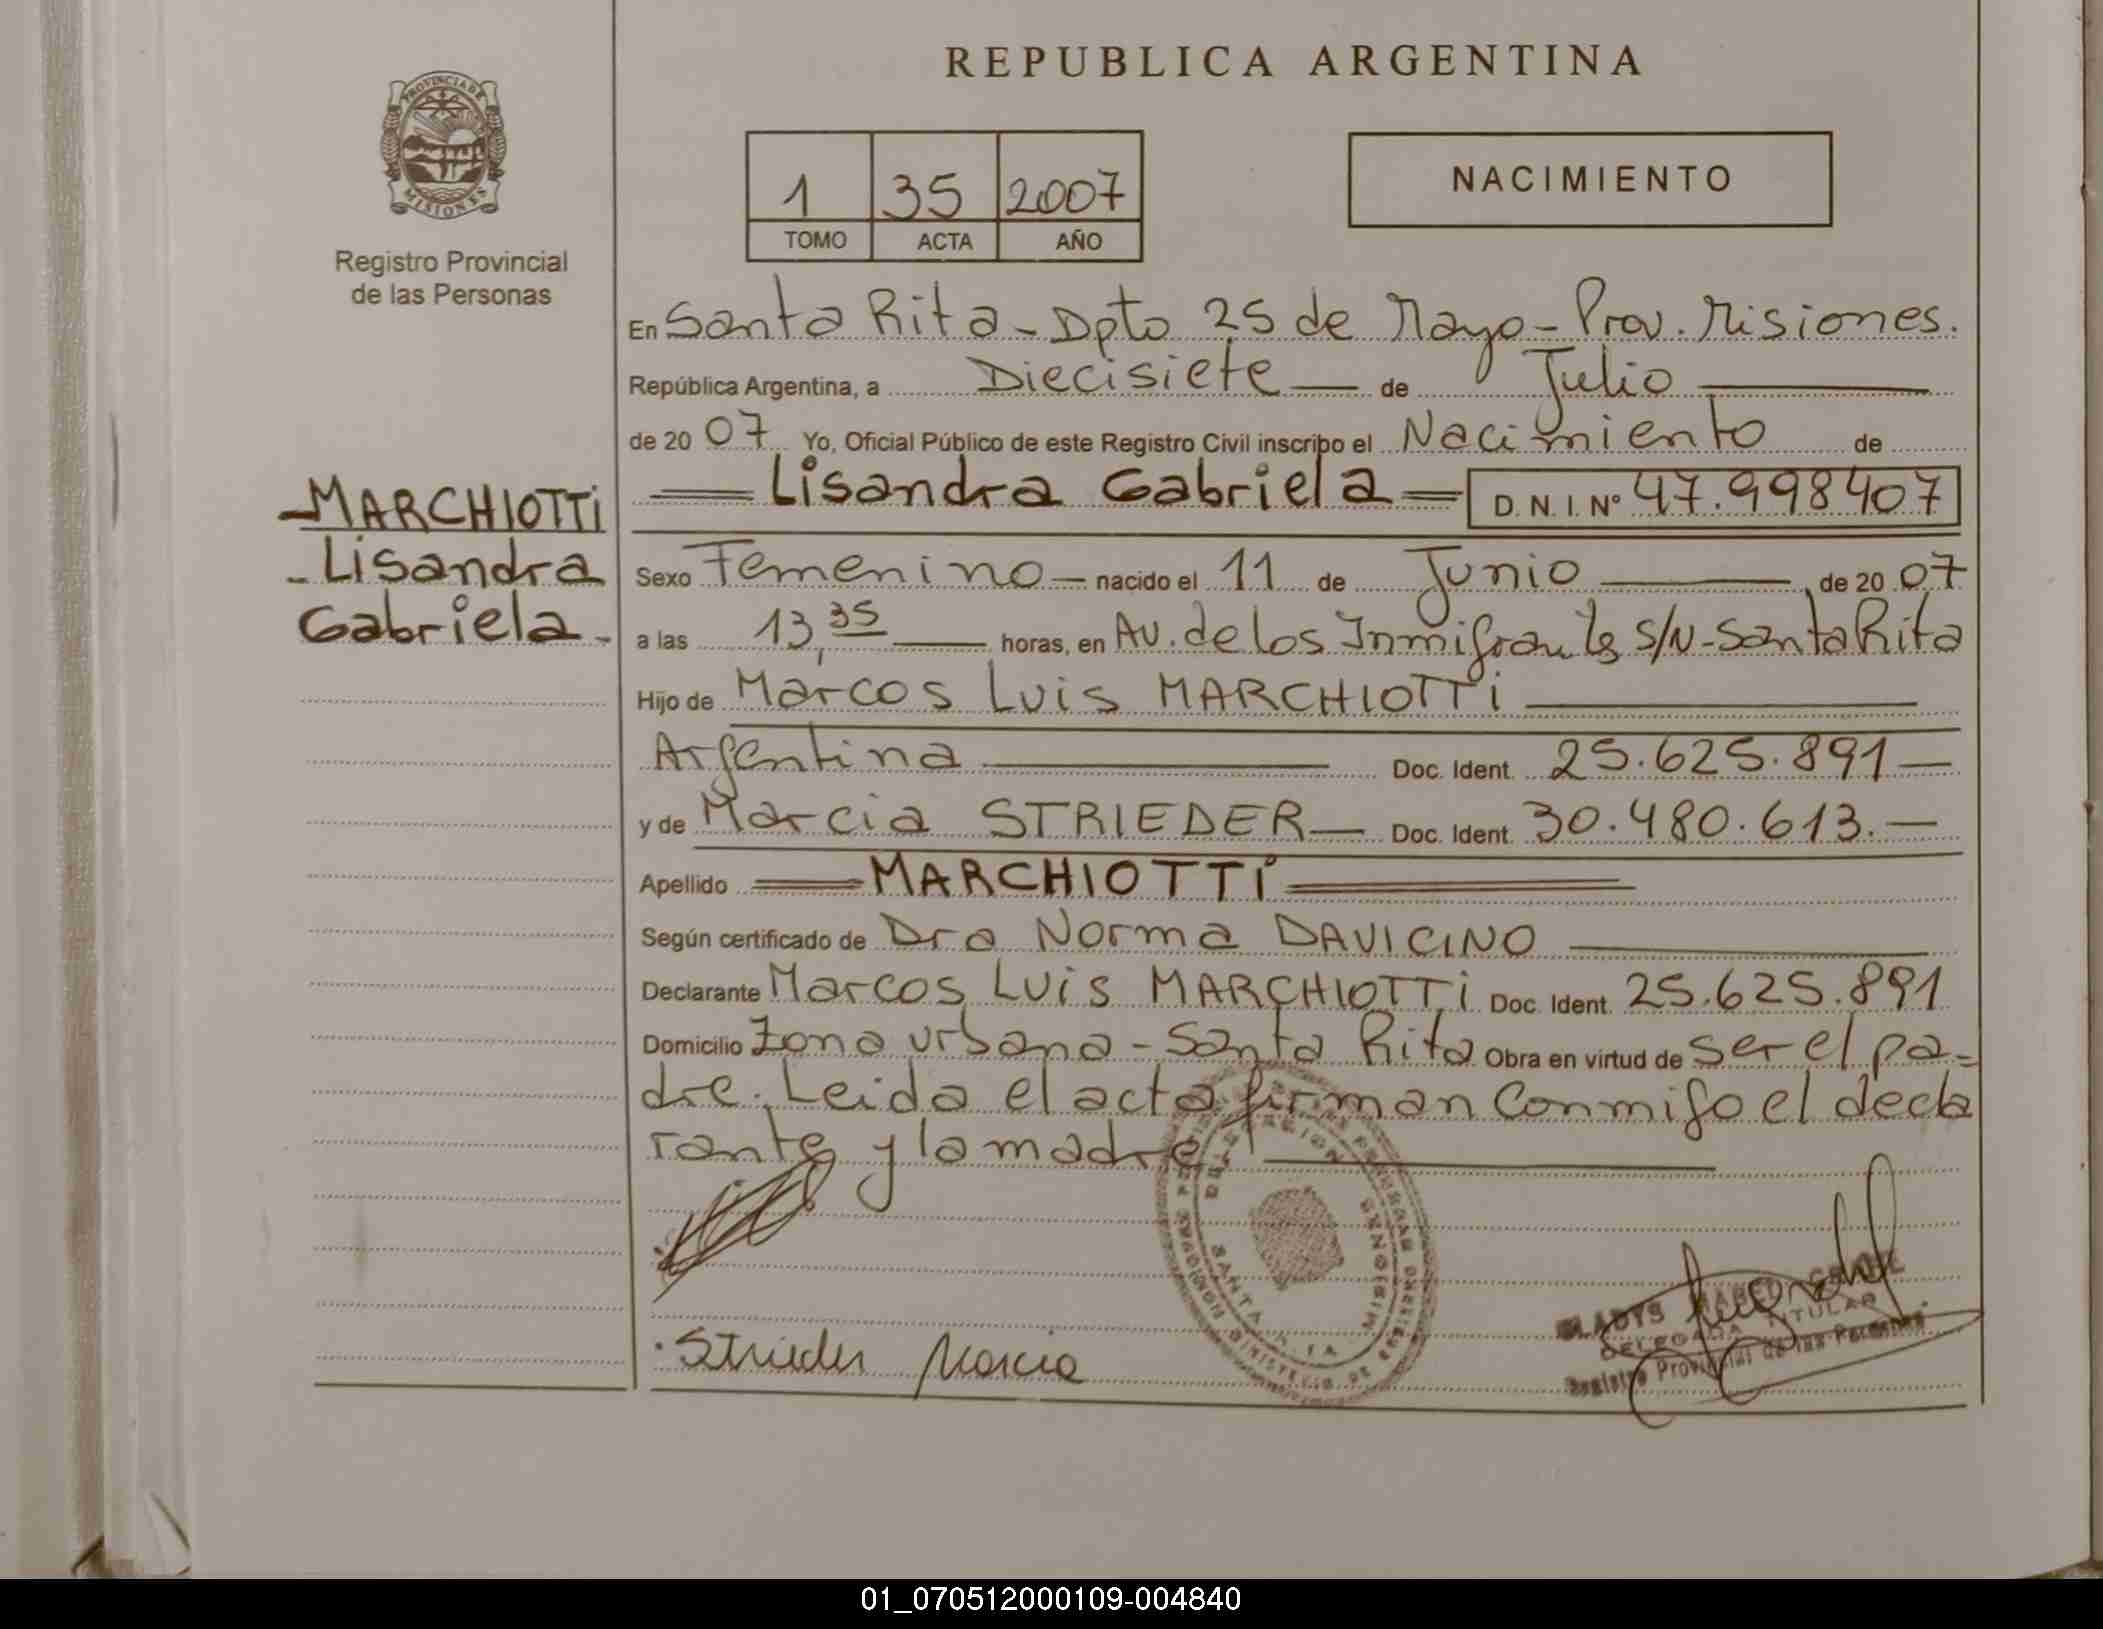 REPUBLICA ARGENTINA
PROVINCIA DE
MISIONES
Registro Provincial
de las Personas
1 35 2007
TOMO ACTA AÑO
NACIMIENTO
En Santa Rita - Dpto 25 de Mayo - Prov. Misiones.
República Argentina, a Diecisiete de Julio
de 20 07 Yo, Oficial Público de este Registro Civil inscribo el Nacimiento de
Lisandra Gabriela D. N. I. Nº 47.998407
- MARCHIOTTi
- Lisandra
Gabriela -
Sexo Femenino nacido el 11 de Junio, de 20 07
a las 13,35 horas, en Av. de los Inmigrantes S/N - Santa Rita
Hijo de Marcos Luis MARCHIOTTi
Argentina Doc. Ident. 25.625.891
y de Marcia STRIEDER Doc. Ident. 30.480.613.
Apellido MARCHIOTTi
Según certificado de Dra Norma DAVICINO
Declarante Marcos Luis MARCHIOTTi Doc. Ident. 25.625.891
Domicilio Zona urbana - Santa Rita Obra en virtud de ser el pa-
dre. Leida el acta firman conmigo el decla
rante y la madre
Strieder Marcia
SANTA RITA
MISIONES
GLADYS MABEL
DELEGADA TITULAR
Registro Provincial de las Personas
01_070512000109-004840